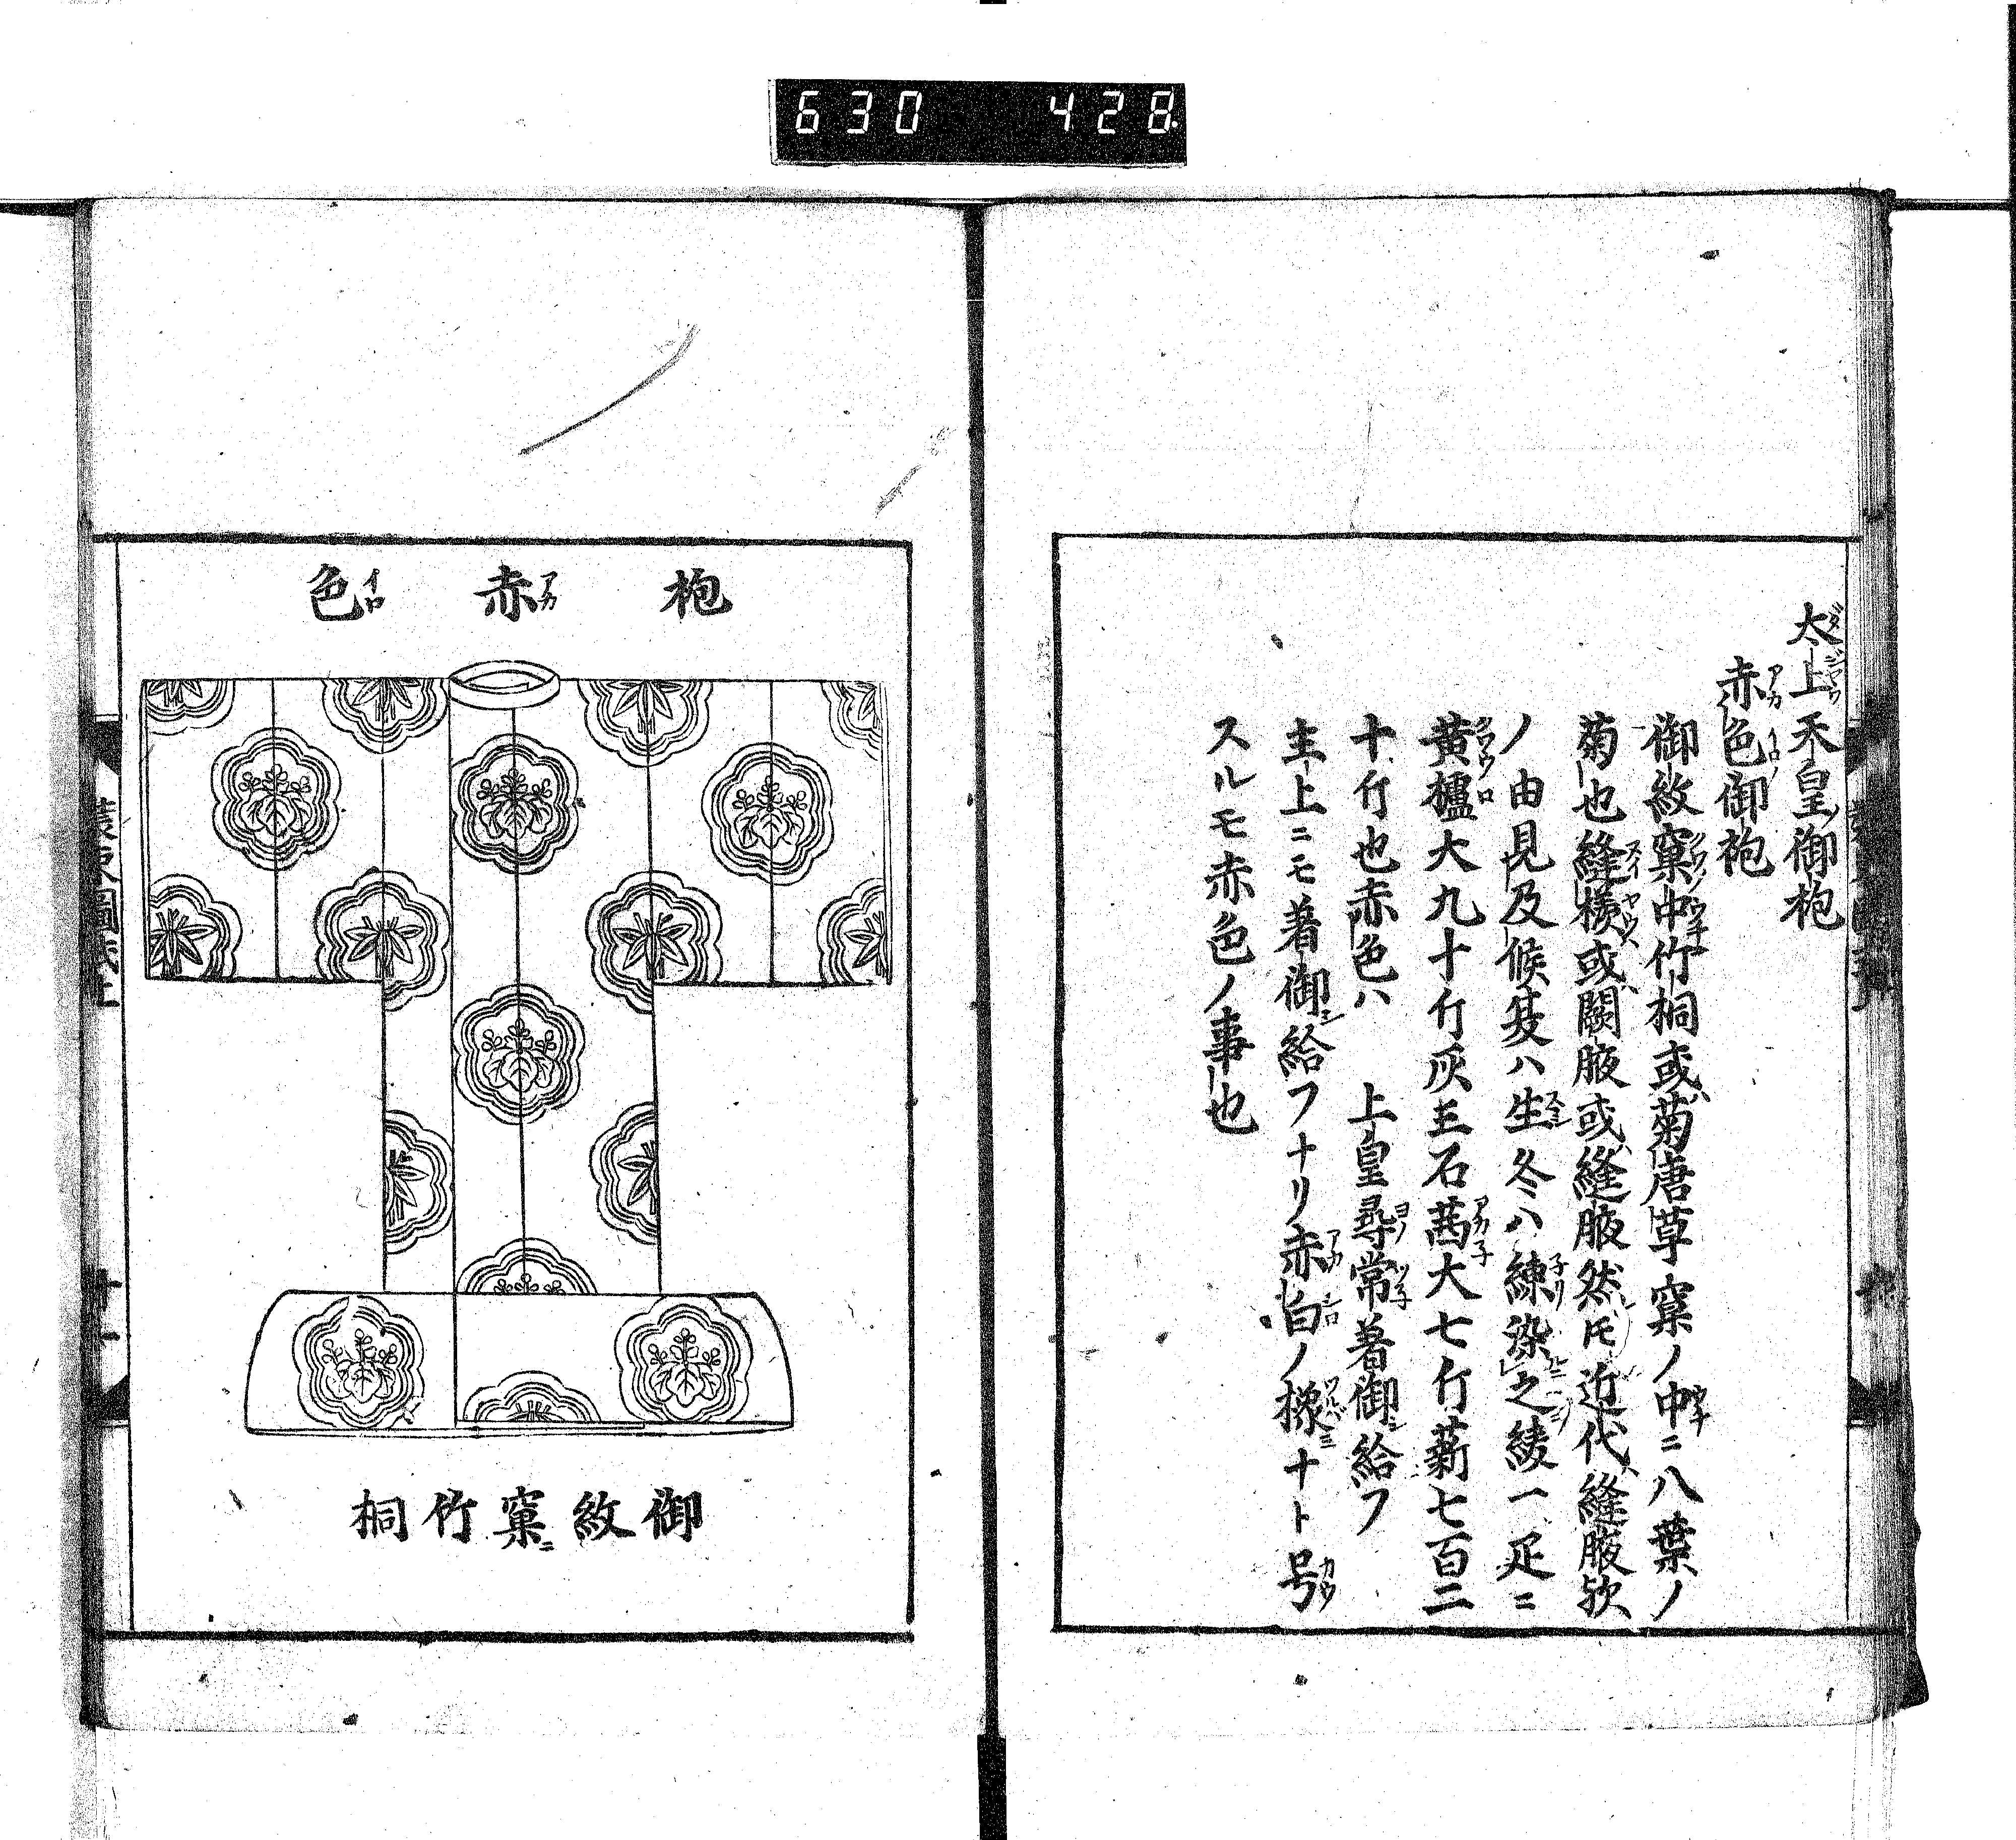 630 428
太上天皇御袍
赤色御袍
御紋窠中竹桐或菊唐草窠ノ中ニ八葉ノ
菊也縫様或闕腋或縫腋然𪜈近代縫腋欤
ノ由見及候夏ハ生冬ハ練染之綾一疋ニ
黄櫨大九十斤灰三石茜大七斤薪七百二
十斤也赤色ハ 上皇尋常着御給フ
主上ニモ着御給フナリ赤白ノ橡ナト号
スルモ赤色ノ事也
袍 赤 色
御紋窠ニ竹桐
十一